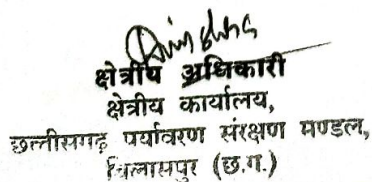 क्षेत्रीय अधिकारी
क्षेत्रीय कार्यालय,
छत्तीसगढ़ पर्यावरण संरक्षण मण्डल,
बिलासपुर (छ.ग.)